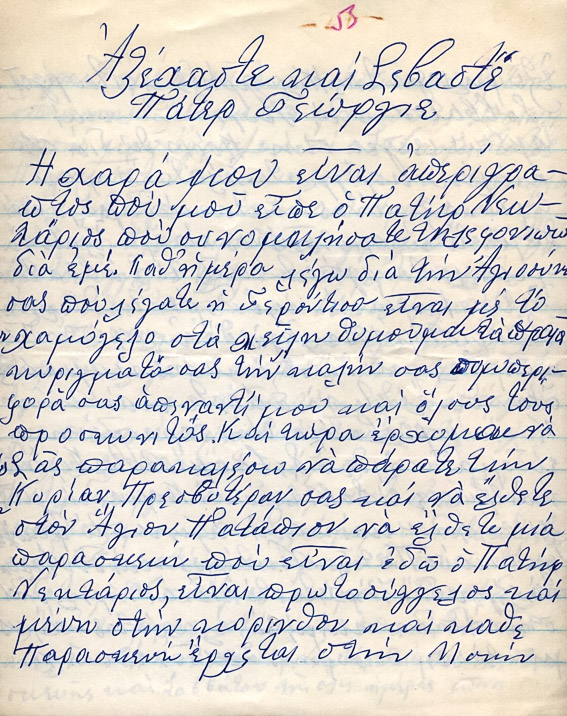 53
Ἀξέχαστε καί Σεβαστέ
Πάτερ Γεώργιε
Ἡ χαρά μου εἶναι ἀπερίγρα-
πτος πού μοῦ εἶπε ὁ Πατήρ Νεκ-
τάριος πού συνομιλήσατε τηλεφονικῶς
διά ἐμέ. Καθ ἡμέρα λέγω διά τήν Ἁγιοσύνη
σας πού λέγατε ἡ Γερόντισα εἶναι μέ τό
χαμόγελο στά χείλη θυμοῦμαι τά
κυρίγματά σας τήν καλήν σας συμπερι-
φορά σας ἀπεναντί μου καί ὅλους τούς
προσκυνιτάς. Καί τώρα ἔρχομαι νά
Σᾶς παρακαλέσω νά πάρατε τήν
Κυρίαν Πρεσβυτέραν σας καί νά ἔλθετε
στόν Ἅγιον Πατάπιον νά ἔλθετε μία
παρασκευή πού εἶναι ἐδῶ ὁ Πατήρ
Νεκτάριος, εἶναι πρωτοσύγγελος καί
μένη στήν κόρινθον καί καθε
Παρασκευή ἔρχεται στήν Μονήν